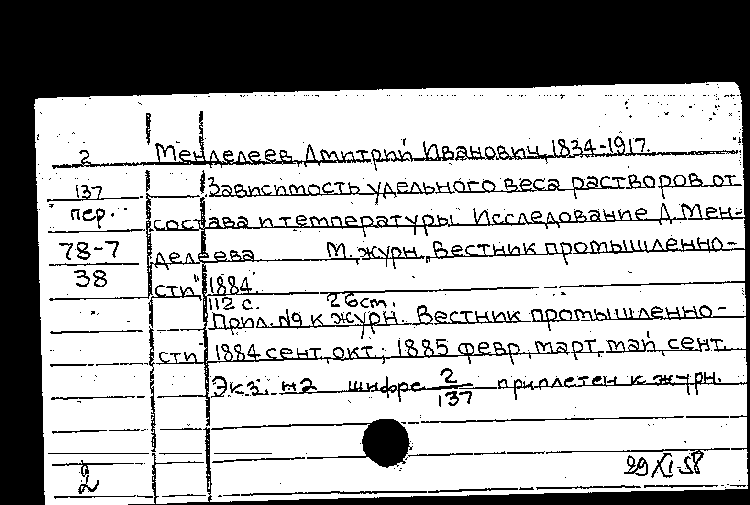 2 Менделеев, Дмитрий Иванович, 1834-1917.
137 Зависимость удельного веса растворов от
пер. состава и температуры. Исследование Д. Мен-
78-7 делеева М., журн. „Вестник промышленно-
38 сти", 1884.
112 с. 26 см.
Прил. № к журн. Вестник промышленно-
сти 1884 сент., окт.; 1885 февр., март, май, сент.
Экз. №2 шифре 2/137 приплетен к журн.
2 29/XI 58